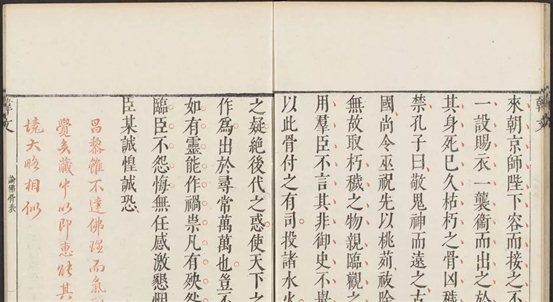 韓文
來朝京師陛下容而接之不
一設賜衣一襲衞而出之於
其身死已久枯朽之骨凶穢
禁孔子曰敬鬼神而遠之古
國尚令巫祝先以桃茢祓
無故取朽穢之物親臨觀之
用羣臣不言其非御史不舉
以此骨付之有司投諸水火
之疑絶後代之惑使天下之
作爲出於尋常萬萬也豈不
如有靈能作禍祟凡有殃
臨臣不怨悔無任感激懇悃
臣某誠惶誠恐
昌黎雖不達佛理而氣
其
境大略相似
韓文
論佛骨表